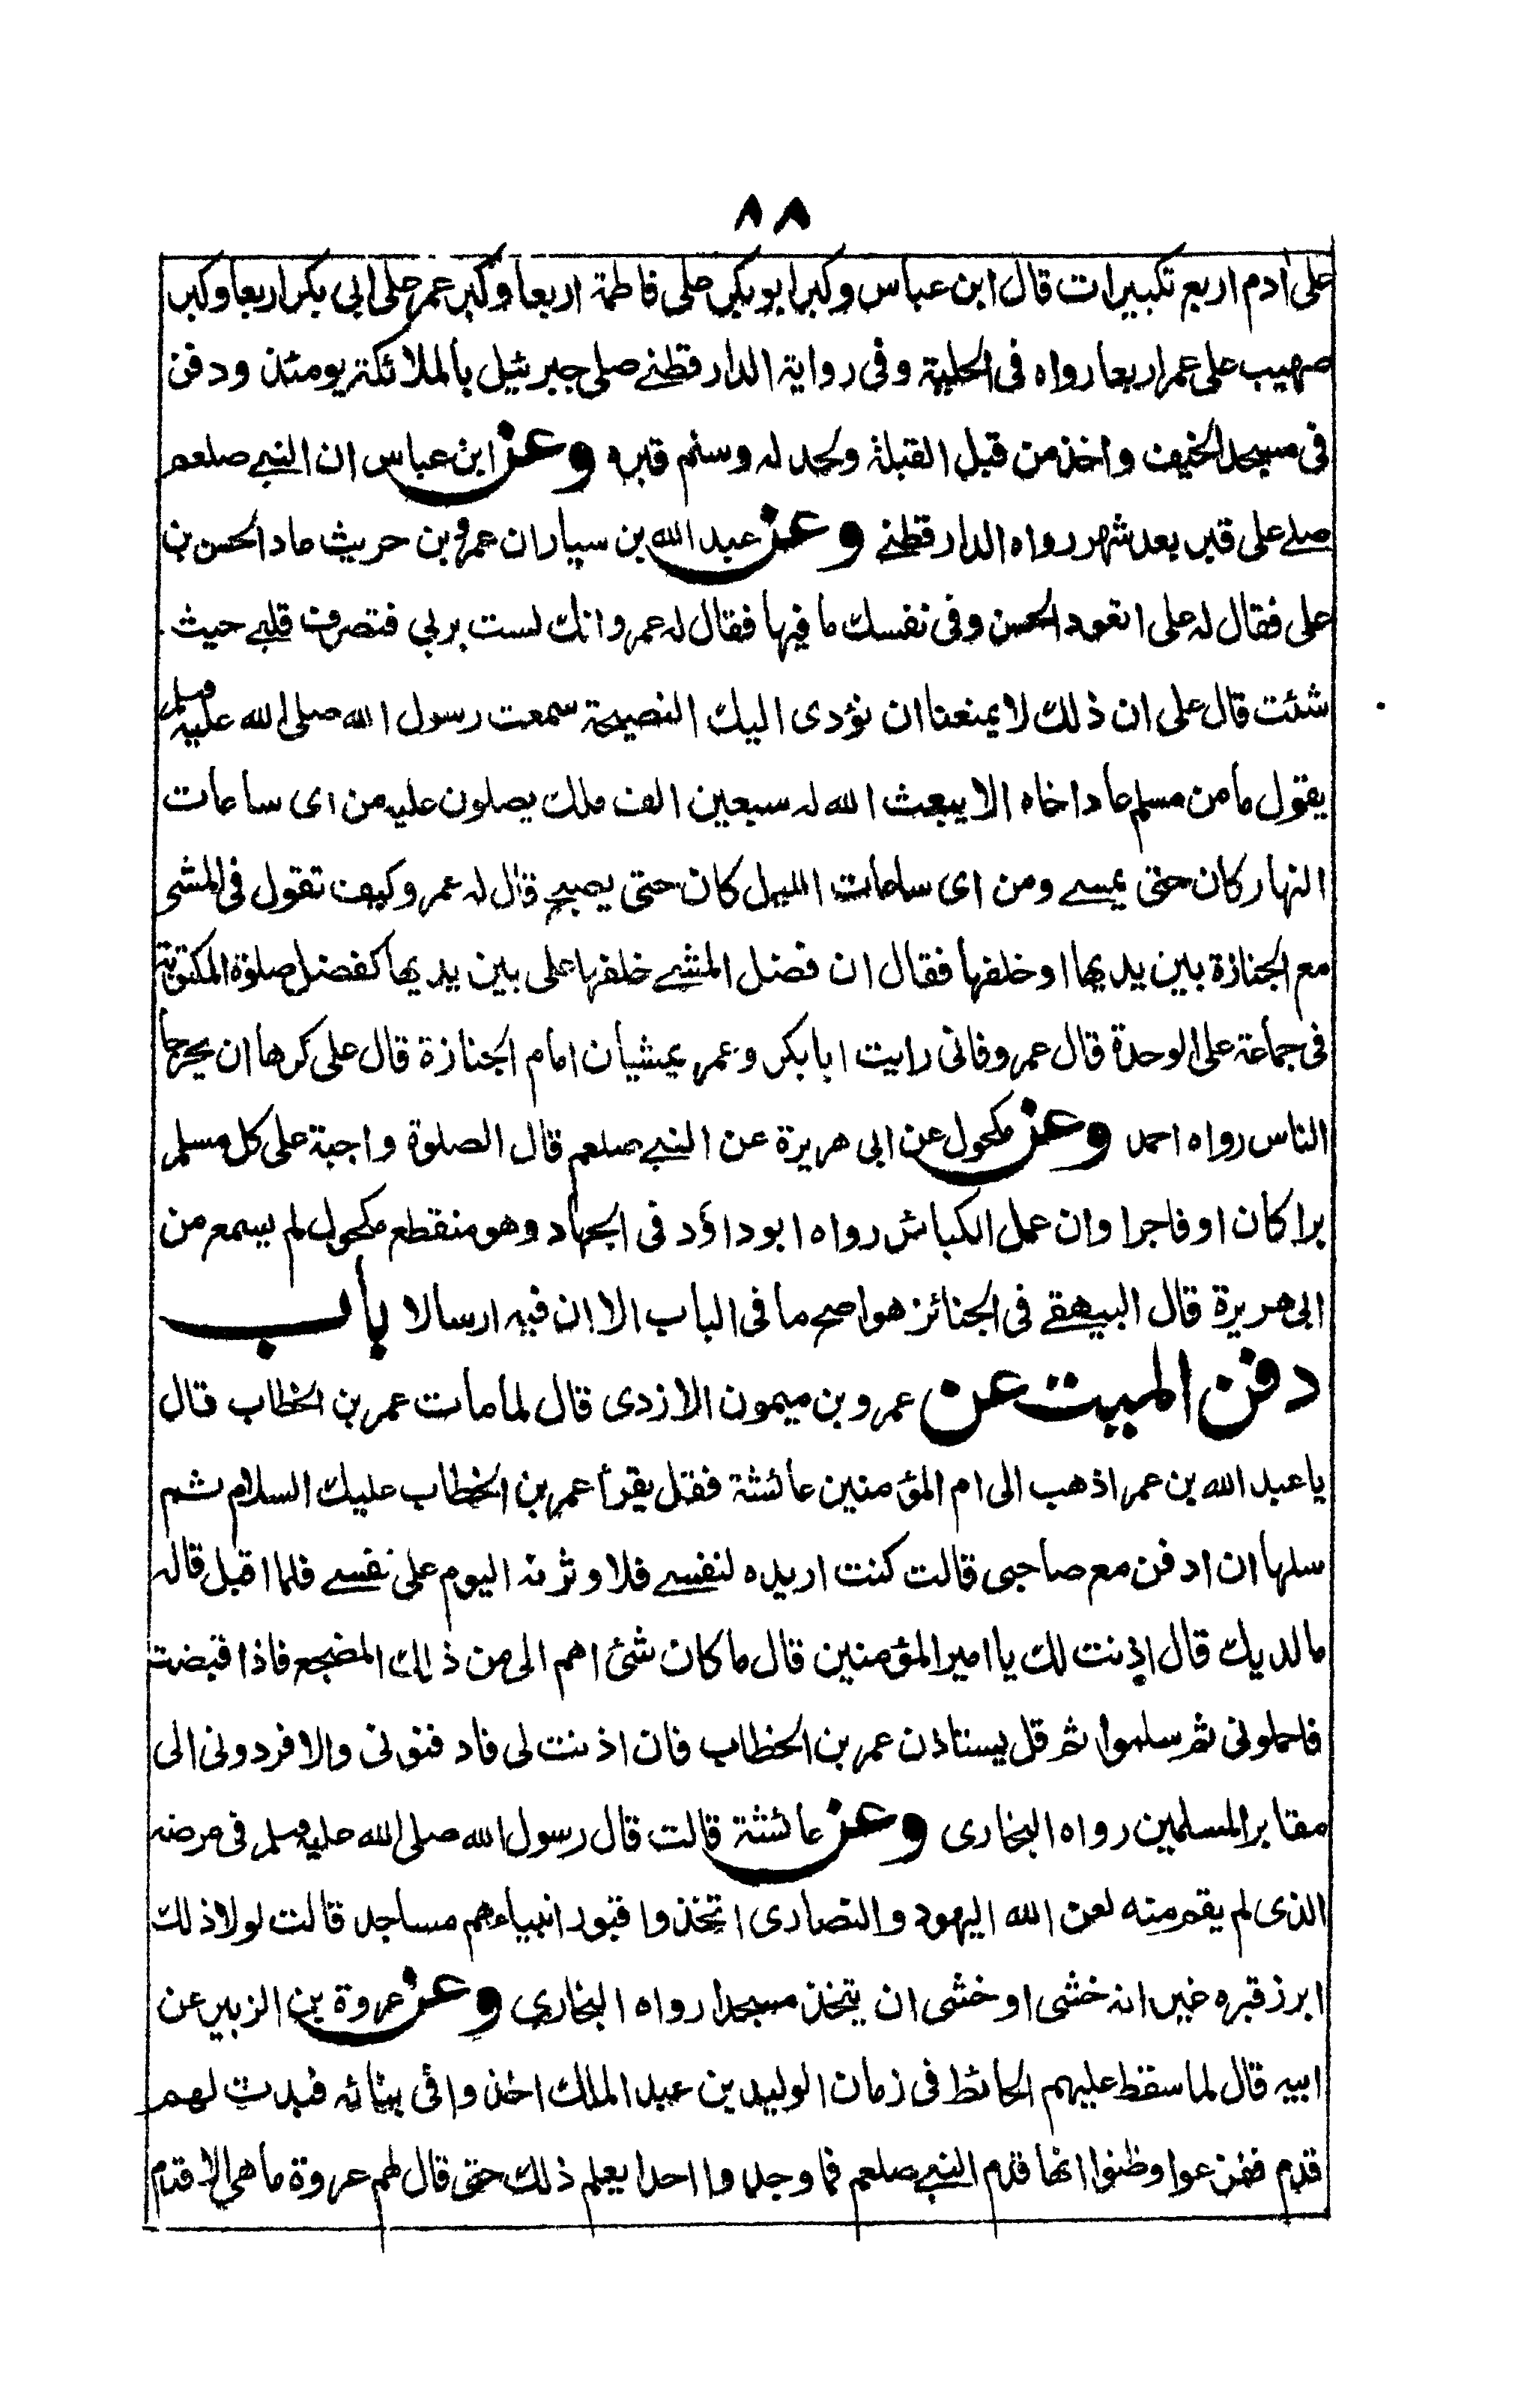 ٨٨
على ادم اربع تكبيرات قال ابن عباس وكبر ابو بكر على فاطمة اربعا وكبر عمر على ابى بكر اربعا وكبر
صهيب على عمر اربعا رواه فى الحلية وفى رواية الدارقطنے صلى جبرئيل بالملائكة يومئذ ودفن
فى مسجد الخيف واخذ من قبل القبلة ولحد له وسنم قبره وعن ابن عباس ان النبے صلعم
صلے على قبر بعد شهر رواه الدارقطنے وعن عبد الله بن سيار ان عمرو بن حريث عاد الحسن بن
على فقال له على اتعود الحسن وفى نفسك ما فيها فقال له عمرو انك لست بربي فتصرف قلبے حيث
شئت قال على ان ذلك لا يمنعنا ان نؤدى اليك النصيحة سمعت رسول الله صلى الله عليه وسلم
يقول ما من مسلم عاد اخاه الا يبعث الله له سبعين الف ملك يصلون عليه من اى ساعات
النهار كان حتى يمسے ومن اى ساعات الليل كان حتى يصبح قال له عمرو كيف تقول فى المشى
مع الجنازة بين يديها او خلفها فقال ان فضل المشے خلفها على بين يديها كفضل صلوة المكتوبة
فى جماعة على الوحدة قال عمرو فانى رايت ابا بكر وعمر يمشيان امام الجنازة قال على كرها ان يحرجا
الناس رواه احمد وعن مكحول عن ابى هريرة عن النبے صلعم قال الصلوة واجبة على كل مسلم
برا كان او فاجرا وان عمل الكبائر رواه ابو داؤد فى الجهاد وهو منقطع مكحول لم يسمع من
ابى هريرة قال البيهقے فى الجنائز هو اصح ما فى الباب الا ان فيه ارسالا باب
دفن الميت عن عمرو بن ميمون الازدى قال لما مات عمر بن الخطاب قال
يا عبد الله بن عمر اذهب الى ام المؤمنين عائشة فقل يقرأ عمر بن الخطاب عليك السلام ثم
سلها ان ادفن مع صاحبى قالت كنت اريده لنفسے فلاوثرنه اليوم على نفسے فلما اقبل قال له
ما لديك قال اذنت لك يا امير المؤمنين قال ما كان شئ اهم الى من ذلك المضجع فاذا قبضت
فاحملونى ثم سلموا ثم قل يستاذن عمر بن الخطاب فان اذنت لى فادفنونى والا فردونى الى
مقابر المسلمين رواه البخارى وعن عائشة قالت قال رسول الله صلى الله عليه وسلم فى مرضه
الذى لم يقم منه لعن الله اليهود والنصارى اتخذوا قبور انبياءهم مساجد قالت لولا ذلك
ابرز قبره غير انه خشى او خشى ان يتخذ مسجدا رواه البخارى وعن عروة بن الزبير عن
ابيه قال لما سقط عليهم الحائط فى زمان الوليد بن عبد الملك اخذوا فى بنائه فبدت لهم
قدم ففزعوا وظنوا انها قدم النبے صلعم فما وجدوا احدا يعلم ذلك حتى قال لهم عروة ما هى الا قدم